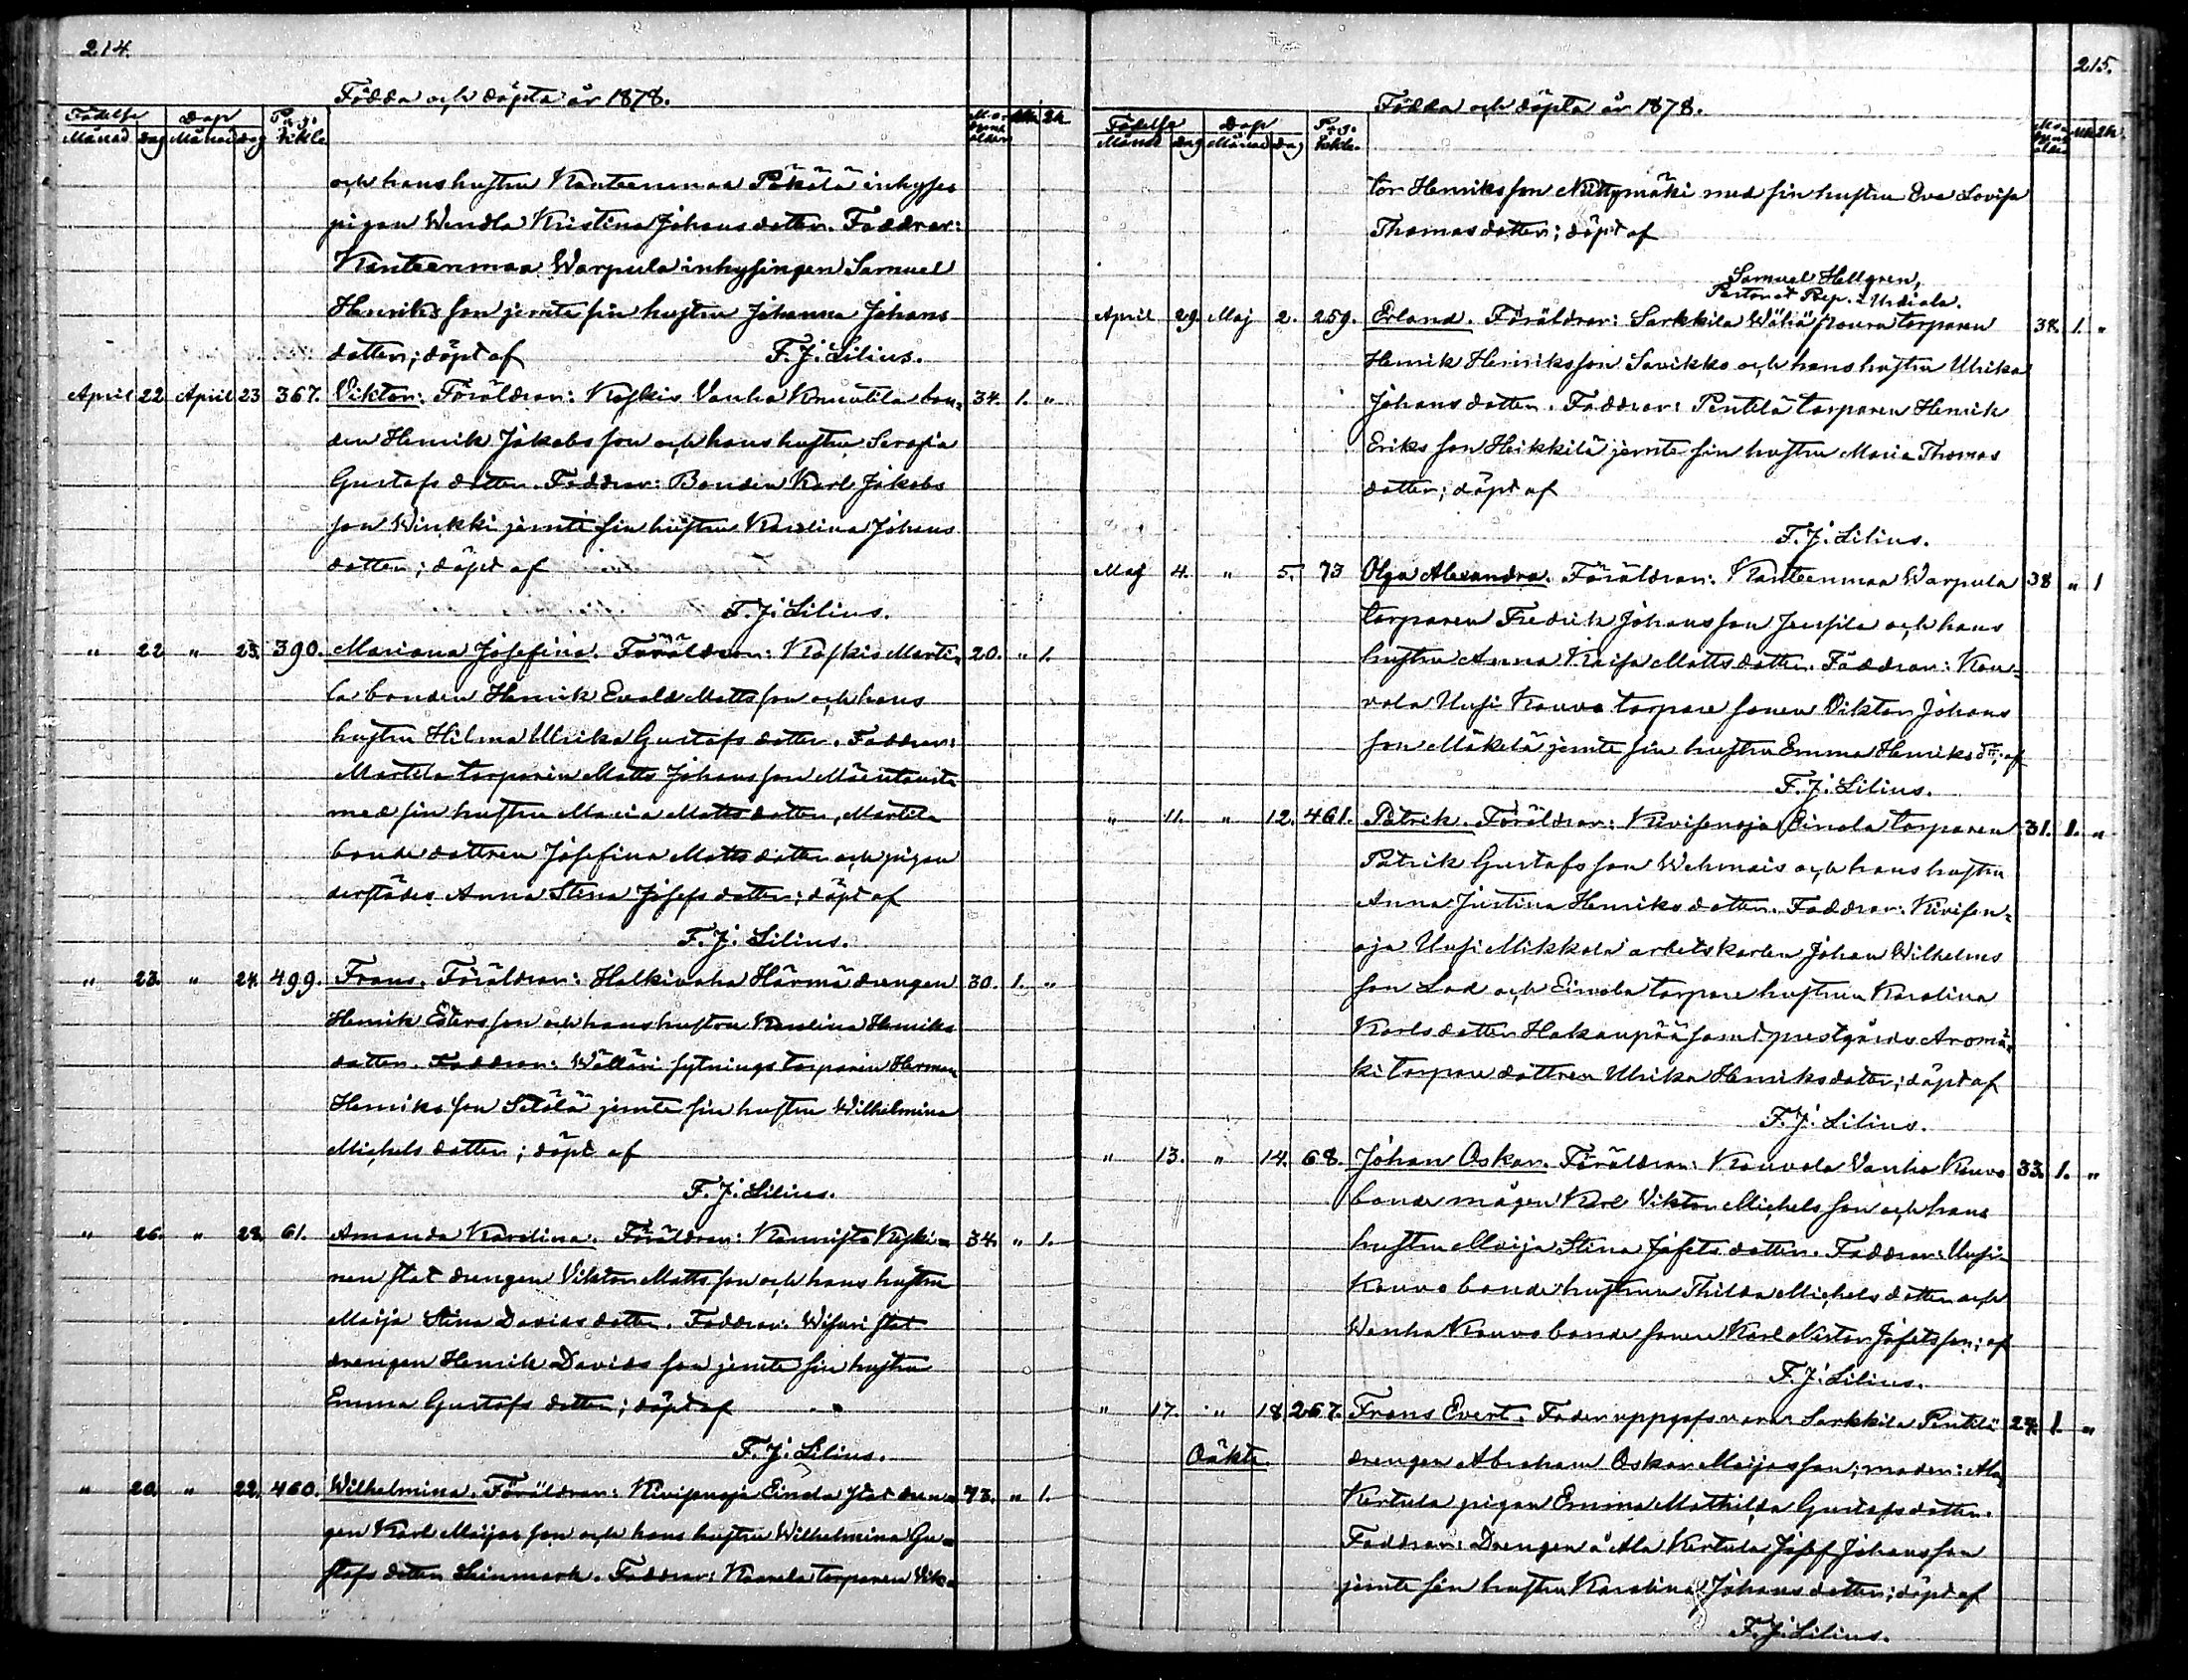 214.
Födda och döpta år 1878.
Födelse Dop Pag. i kkb. Moderns ålder Mk. Qk.
Månad Dag Månad Dag
och hans hustru Kanteenmaa Päkälä inhyses
pigan Wendla Kristina Johans dotter. Faddrar:
Kanteenmaa Warpula inhysingen Samuel
Henriks son jemte sin hustru Johanna Johans
dotter; döpt af F. J. Lilius.
April 22 April 23 367. Viktor. Föräldrar: Koskis Vanha Knuutila bon- 34. 1. "
den Henrik Jakobs son och hans hustru Serafia
Gustafs dotter. Faddrar: Bonden Karl Jakobs
son Winkki jemte sin hustru Karolina Johans
dotter; döpt af
F. J. Lilius.
" 22 " 23. 390. Mariana Josefina. Föräldrar: Koskis Marti- 20. " 1.
la bonden Henrik Evald Matts son och hans
hustru Hilma Ulrika Gustafs dotter. Faddrar:
Martila torparen Matts Johans son Mäentausta
med sin hustru Maria Matts dotter, Martila
bonde dottren Josefina Matts dotter och pigan
derstädes Anna Stina Josefs dotter; döpt af
F. J. Lilius.
" 23. " 24. 499. Frans. Föräldrar: Halkivaha Härmä drengen 30. 1. "
Henrik Esters son och hans hustru Karolina Henriks
dotter. Faddrar: Wälläri sytnings torparen Herman
Henriks son Setälä jemte sin hustru Wilhelmina
Michels dotter; döpt af
F. J. Lilius.
" 26. " 28. 61. Amanda Karolina. Föräldrar: Kannisto Koski- 34. " 1.
nen stat drengen Viktor Matts son och hans hustru
Maija Stina Davids dotter. Faddrar: Wihuri stat
drengen Henrik Davids son jemte sin hustru
Emma Gustafs dotter; döpt af
F. J. Lilius.
" 20. " 22. 460. Wilhelmina. Föräldrar: Kivisenoja Einola stat dren- 43. " 1.
gen Karl Maijas son och hans hustru Wilhelmina Gu-
stafs dotter Leinmark. Faddrar: torparen Vik-
215.
Födda och döpta år 1878.
Födelse Dop Pag. i kkb. Moderns ålder Mk. Qk.
Månad Dag Månad Dag
tor Henriks son Niittymäki med sin hustru Eva Lovisa
Thomas dotter; döpt af
Samuel Hellgren,
Pastorat Rep. i Urdiala.
April 29. Maj 2. 259. Erland. Föräldrar: Sarkkila torparen 38. 1. "
Henrik Henriks son Savikko och hans hustru Ulrika
Johans dotter. Faddrar: Pentilä torparen Henrik
Eriks son Heikkilä jemte sin hustru Maria Thomas
dotter; döpt af
F. J. Lilius.
Maj 4. " 5. 73 Olga Alexandra. Föräldrar: Kanteenmaa Warpula 38 " 1
torparen Fredrik Johans son Jussila och hans
hustru Anna Kaisa Matts dotter. Faddrar: Kou-
vola Uusi Kouvo torpare sonen Viktor Johans
son Mäkelä jemte sin hustru Emma Henriks dtr; af
F. J. Lilius.
" 11. " 12. 461. Patrik. Föräldrar: Kivisenoja Einola torparen 31. 1. "
Patrik Gustafs son Wehmais och hans hustru
Anna Justina Henriks dotter. Faddrar: Kivisen-
oja Uusi Mikkola arbetskarlen Johan Wilhelms
son Lad och Einola torpare hustrun Karolina
Karls dotter Hakanpää samt prestgårds Aromä-
ki torpare dottren Ulrika Henriks dotter; döpt af
F. J. Lilius.
" 13. " 14. 68. Johan Oskar. Föräldrar: Kouvola Vanha Kouvo 33. 1. "
bonde mågen Karl Viktor Michels son och hans
hustru Maija Stina Jafets dotter. Faddrar: Uusi
Kouvo bonde hustrun Thilda Michels dotter och
Wanha Kouvo bonde sonen Karl Nestor Jafets son; af
F. J. Lilius.
" 17. " 18. 267. Frans Evert. Fader uppgifs vara Sarkkila Pentilä 24. 1. "
Oäkta. drengen Abraham Oskar Maijas son; moder: Ala
Kertula pigan Emma Mathilda Gustafs dotter.
Faddrar: Drengen å Ala Kertula Josef Johans son
jemte sin hustru Karolina Johans dotter; döpt af
F. J. Lilius.